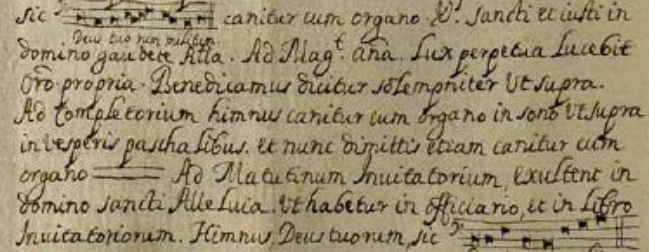 sic canitur cum organo. V. Sancti et iusti in
Deus tuo rum militum
domino gaudete Alla. Ad Mag.t ana. Lux perpetua Lucebit
Oro propria. Benedicamus dicitur solempniter Ut supra.
Ad Completorium himnus canitur cum organo in sono Ut supra
in vesperis paschalibus. et nunc dimittis etiam canitur cum
organo Ad Matutinum Inuitatorium, Exultent in
domino sancti Alleluia. Ut habetur in officiario, et in Libro
Inuitatoriorum. Himnus, Deus tuorum, sic